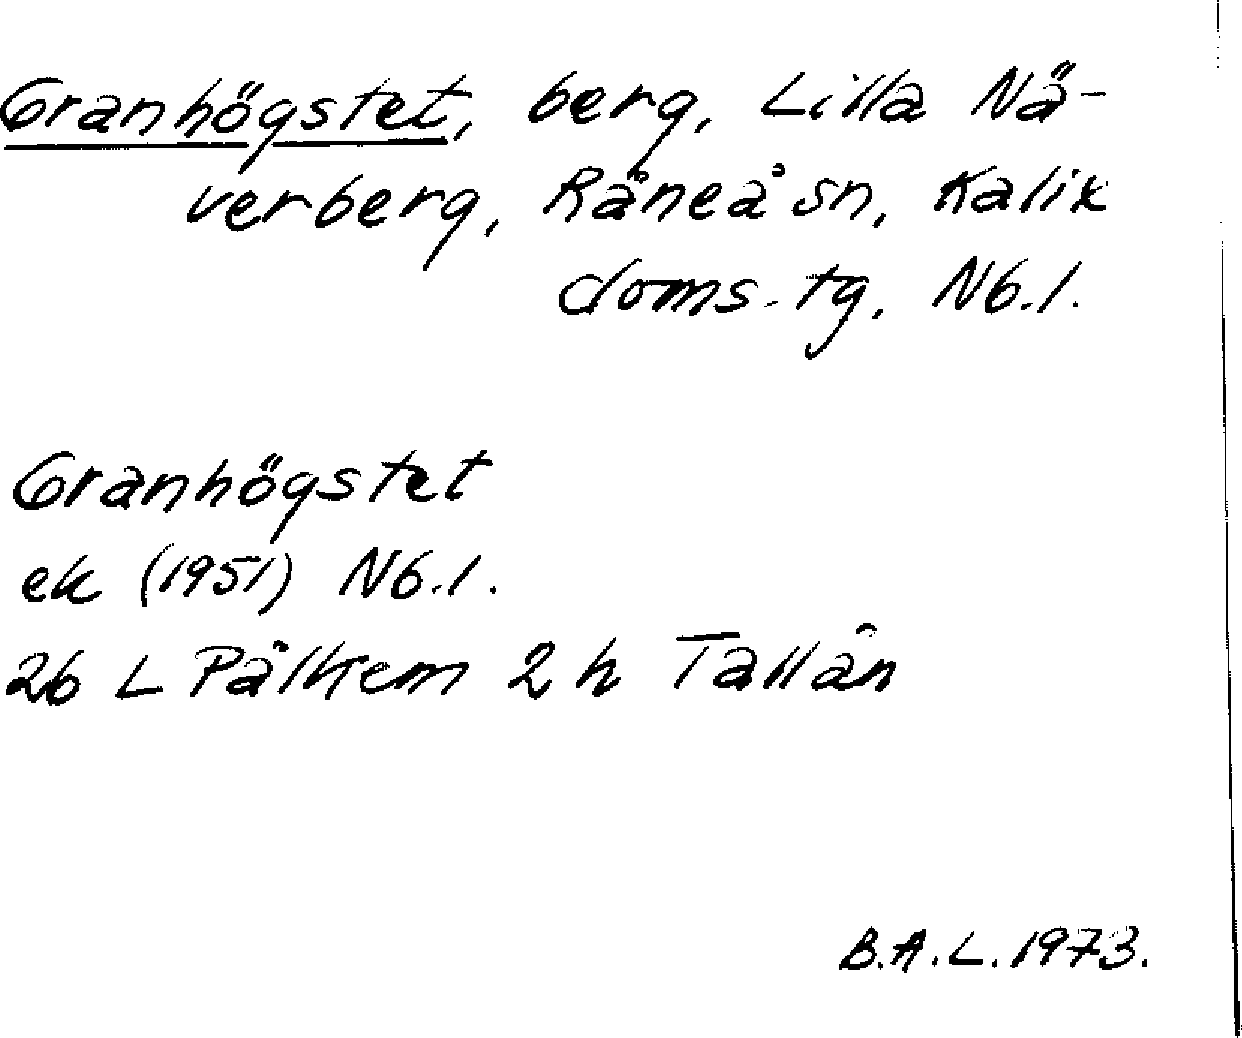 Granhögstet, berg, Lilla Nä-
verberg, Råneå sn, Kalix
doms.tg. Nb.l.
Granhögstet
ek (1951) Nb.l.
26 L Pålkem 2 h Tallån
B.A.L. 1973.